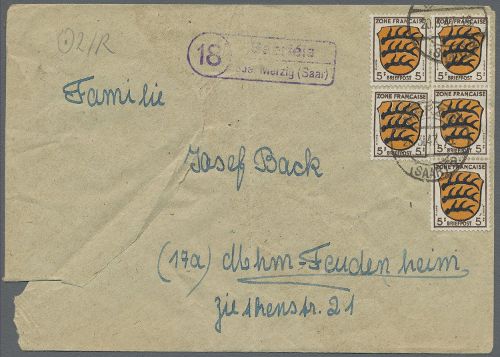 21/R
18
über Merzig (Saar)
ZONE FRANÇAISE
5 pf 5 pf
BRIEFPOST
ZONE FRANÇAISE
5 pf 5 pf
BRIEFPOST
ZONE FRANÇAISE
5 pf 5 pf
BRIEFPOST
ZONE FRANÇAISE
5 pf 5 pf
BRIEFPOST
ZONE FRANÇAISE
5 pf 5 pf
BRIEFPOST
(SAAR)
Familie
Josef Back
(17a) Mhm-Feudenheim,
Ziethenstr. 21